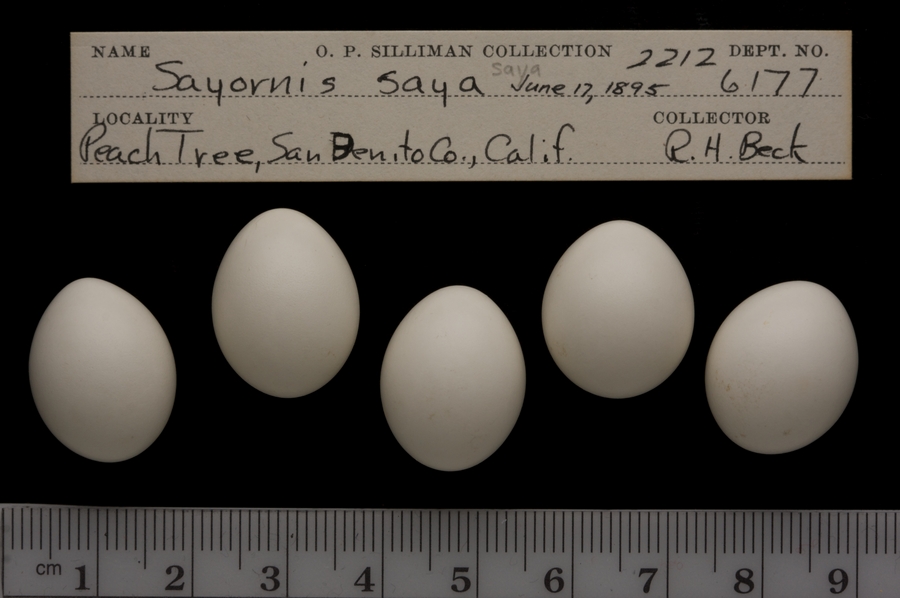 NAME O. P. SILLIMAN COLLECTION 2212 DEPT. NO.
saya
Sayornis saya June 17, 1895 6177
LOCALITY COLLECTOR
Peach Tree, San Benito Co., Calif. R. H. Beck
cm 1 2 3 4 5 6 7 8 9